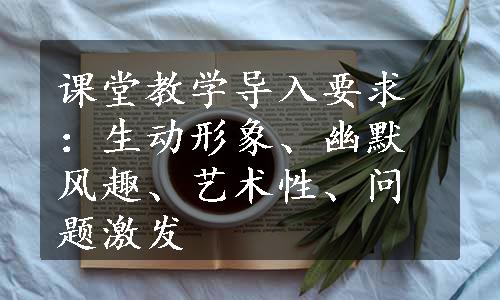 课堂教学导入要求
：生动形象、幽默
风趣、艺术性、问
题激发